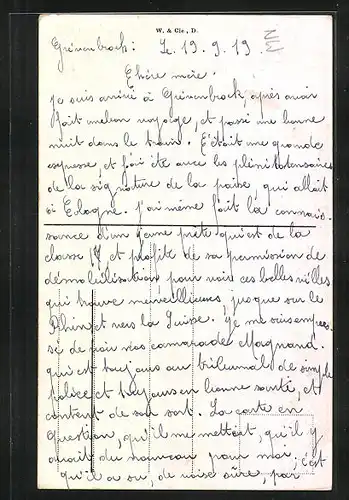 W. & Cie., D.
Grévenbroch: Le 19.9.19.
Chère mère.
Je suis arrivé à Grévenbrock, après avoir
fait un bon voyage, et passé une bonne
nuit dans le train. C'était une grande
espresse, et j'ai été avec les plénipotensiaires
de la signature de la paise, qui allait
à Cologne. J'ai même fait la connais
sance d'un jeune prête qui est de la
classe 17 et profite de sa permission de
démobilisation, pour voir ces belles villes
qui trouve merveilleuses, jusque sur le
Rhin et vers la Suisse. Je me suis empres
sé de voir mon camarade Magnand.
qui est toujours au tribunals de simple
police et toujours en bonne santé, et
content de son sort. La carte en
question, qu'il me mettait, qu'il y
avait du nouveau pour moi, c'est
qu'il a su, de par